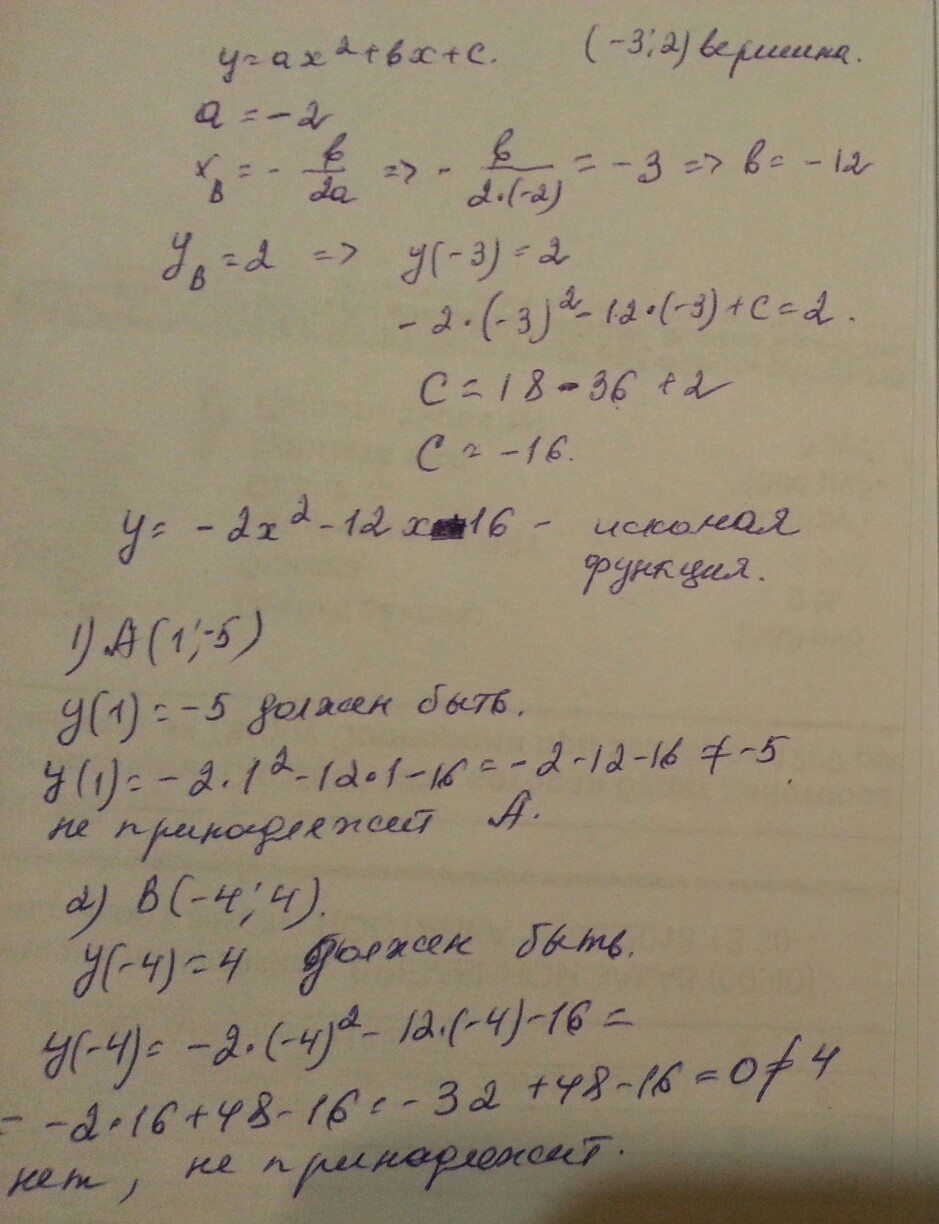 y=ax²+bx+c. (-3; 2) вершина.
a = -2
x_B = - b/2a => - b/2·(-2) = -3 => b = -12
y_B = 2 => y(-3) = 2
-2·(-3)² - 12·(-3) + C = 2.
C = 18 - 36 + 2
C = -16.
y = -2x² - 12x - 16 - искомая
функция.
1) A(1; -5)
y(1) = -5 должен быть.
y(1) = -2·1² - 12·1 - 16 = -2 - 12 - 16 ≠ -5
не принадлежит A.
2) B(-4; 4).
y(-4) = 4 должен быть.
y(-4) = -2·(-4)² - 12·(-4) - 16 =
= -2·16 + 48 - 16 = -32 + 48 - 16 = 0 ≠ 4
нет, не принадлежит.